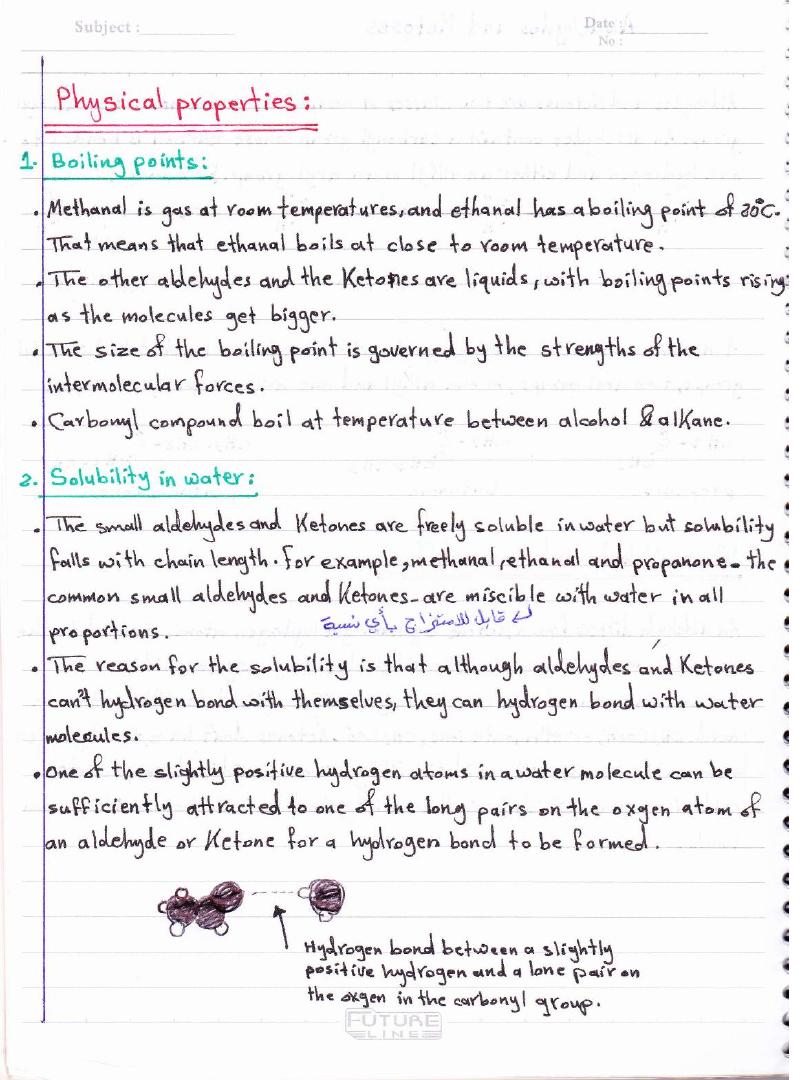 Subject :
Date :
No :
Physical properties:
1. Boiling points:
• Methanal is gas at room temperatures, and ethanal has a boiling point of 20°C.
That means that ethanal boils at close to room temperature.
• The other aldehydes and the Ketones are liquids, with boiling points rising
as the molecules get bigger.
• The size of the boiling point is governed by the strengths of the
intermolecular forces.
• Carbonyl compound boil at temperature between alcohol & alkane.
2. Solubility in water:
• The small aldehydes and Ketones are freely soluble in water but solubility
falls with chain length. For example, methanal, ethanal and propanone - the
common small aldehydes and Ketones - are miscible with water in all
proportions.
قابل للامتزاج بأي نسبة
• The reason for the solubility is that although aldehydes and Ketones
can't hydrogen bond with themselves, they can hydrogen bond with water
molecules.
• One of the slightly positive hydrogen atoms in a water molecule can be
sufficiently attracted to one of the long pairs on the oxgen atom of
an aldehyde or Ketone for a hydrogen bond to be formed.
Hydrogen bond between a slightly
positive hydrogen and a lone pair on
the oxgen in the carbonyl group.
FUTURE
LINE